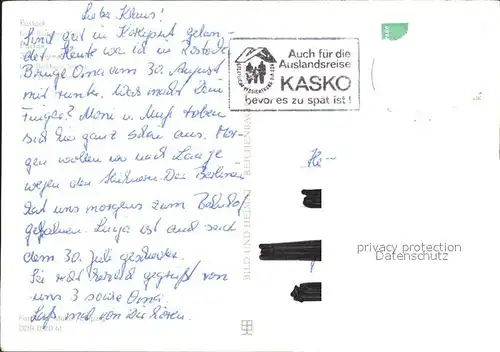 Lieber Klaus!
Sind gut in
gelan-
det. Heute war ich in Rostock
Bringe Oma am 30. August
mit runter. Was macht Dein
Finger? Moni u. toben
sich hier ganz schön aus. Mor-
gen wollen wir nach
wegen den Der Berliner
hat uns morgens zum Bahnhof
gefahren. ist auch seit
dem 30. Juli geschieden.
Sei recht herzlich gegrüßt von
uns 3 sowie Oma.
Laß mal von Dir hören.
Auch für die
Auslandsreise
KASKO
bevor es zu spät ist!
BILD UND HEIMAT REICHENBACH
privacy protection
Datenschutz